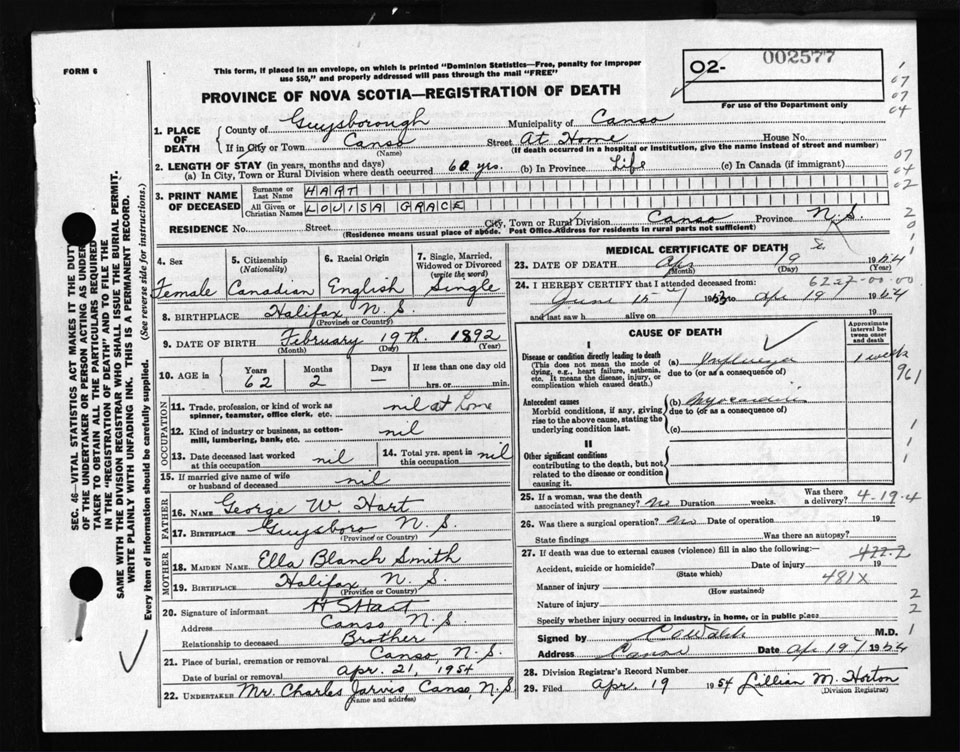 FORM 6
This form, if placed in an envelope, on which is printed "Dominion Statistics—Free, penalty for improper
use $50," and properly addressed will pass through the mail "FREE"
PROVINCE OF NOVA SCOTIA—REGISTRATION OF DEATH
O2-
002577
For use of the Department only
1. PLACE OF DEATH
County of Guysborough Municipality of Canso
If in City or Town Canso Street At Home House No.
(Name) (If death occurred in a hospital or institution, give the name instead of street and number)
2. LENGTH OF STAY (in years, months and days)
(a) In City, Town or Rural Division where death occurred 62 yrs. (b) In Province Life (c) In Canada (if immigrant)
3. PRINT NAME OF DECEASED
Surname or Last Name HART
All Given or Christian Names LOUISA GRACE
RESIDENCE No. Street City, Town or Rural Division Canso Province N.S.
(Residence means usual place of abode. Post Office Address for residents in rural parts not sufficient)
4. Sex Female
5. Citizenship (Nationality) Canadian
6. Racial Origin English
7. Single, Married, Widowed or Divorced (write the word) Single
8. BIRTHPLACE Halifax N.S.
(Province or Country)
9. DATE OF BIRTH February 19th 1892
(Month) (Day) (Year)
10. AGE in Years 62 Months 2 Days — If less than one day old hrs. or min.
OCCUPATION
11. Trade, profession, or kind of work as spinner, teamster, office clerk, etc. nil at home
12. Kind of industry or business, as cotton-mill, lumbering, bank, etc. nil
13. Date deceased last worked at this occupation nil
14. Total yrs. spent in this occupation nil
15. If married give name of wife or husband of deceased nil
FATHER
16. NAME George W. Hart
17. BIRTHPLACE Guysboro N.S.
(Province or Country)
MOTHER
18. MAIDEN NAME Ella Blanch Smith
19. BIRTHPLACE Halifax N.S.
(Province or Country)
20. Signature of informant H S Hart
Address Canso N.S.
Relationship to deceased Brother
21. Place of burial, cremation or removal Canso N.S.
Date of burial or removal Apr. 21, 1954
22. UNDERTAKER Mr. Charles Jarvis, Canso, N.S.
(Name and address)
MEDICAL CERTIFICATE OF DEATH
23. DATE OF DEATH Apr 19 1954
(Month) (Day) (Year)
24. I HEREBY CERTIFY that I attended deceased from:
June 15 1953 to Apr 19 1954
and last saw h alive on
6227-00-00
CAUSE OF DEATH
Approximate interval between onset and death
I
Disease or condition directly leading to death
(This does not mean the mode of dying, e.g., heart failure, asthenia, etc. It means the disease, injury, or complication which caused death.)
(a) 1 week
due to (or as a consequence)
Antecedent causes
Morbid conditions, if any, giving rise to the above cause, stating the underlying condition last.
(b) Myocarditis
due to (or as a consequence)
(c)
II
Other significant conditions
contributing to the death, but not related to the disease or condition causing it.
25. If a woman, was the death associated with pregnancy? No Duration weeks. Was there a delivery?
4-19-4
26. Was there a surgical operation? No Date of operation 19
State findings Was there an autopsy?
27. If death was due to external causes (violence) fill in also the following:—
422.2
Accident, suicide or homicide? Date of injury 19
(State which)
481X
Manner of injury
(How sustained)
Nature of injury
Specify whether injury occurred in industry, in home, or in public place
Signed by M.D.
Address Canso Date Apr 19 1954
28. Division Registrar's Record Number
29. Filed Apr. 19 1954 Lillian M. Horton
(Division Registrar)
SEC. 46—VITAL STATISTICS ACT MAKES IT THE DUTY
OF THE UNDERTAKER OR PERSON ACTING AS UNDER-
TAKER TO OBTAIN ALL THE PARTICULARS REQUIRED
IN THE "REGISTRATION OF DEATH" AND TO FILE THE
SAME WITH THE DIVISION REGISTRAR WHO SHALL ISSUE THE BURIAL PERMIT.
WRITE PLAINLY WITH UNFADING INK. THIS IS A PERMANENT RECORD.
Every item of information should be carefully supplied. (See reverse side for instructions.)